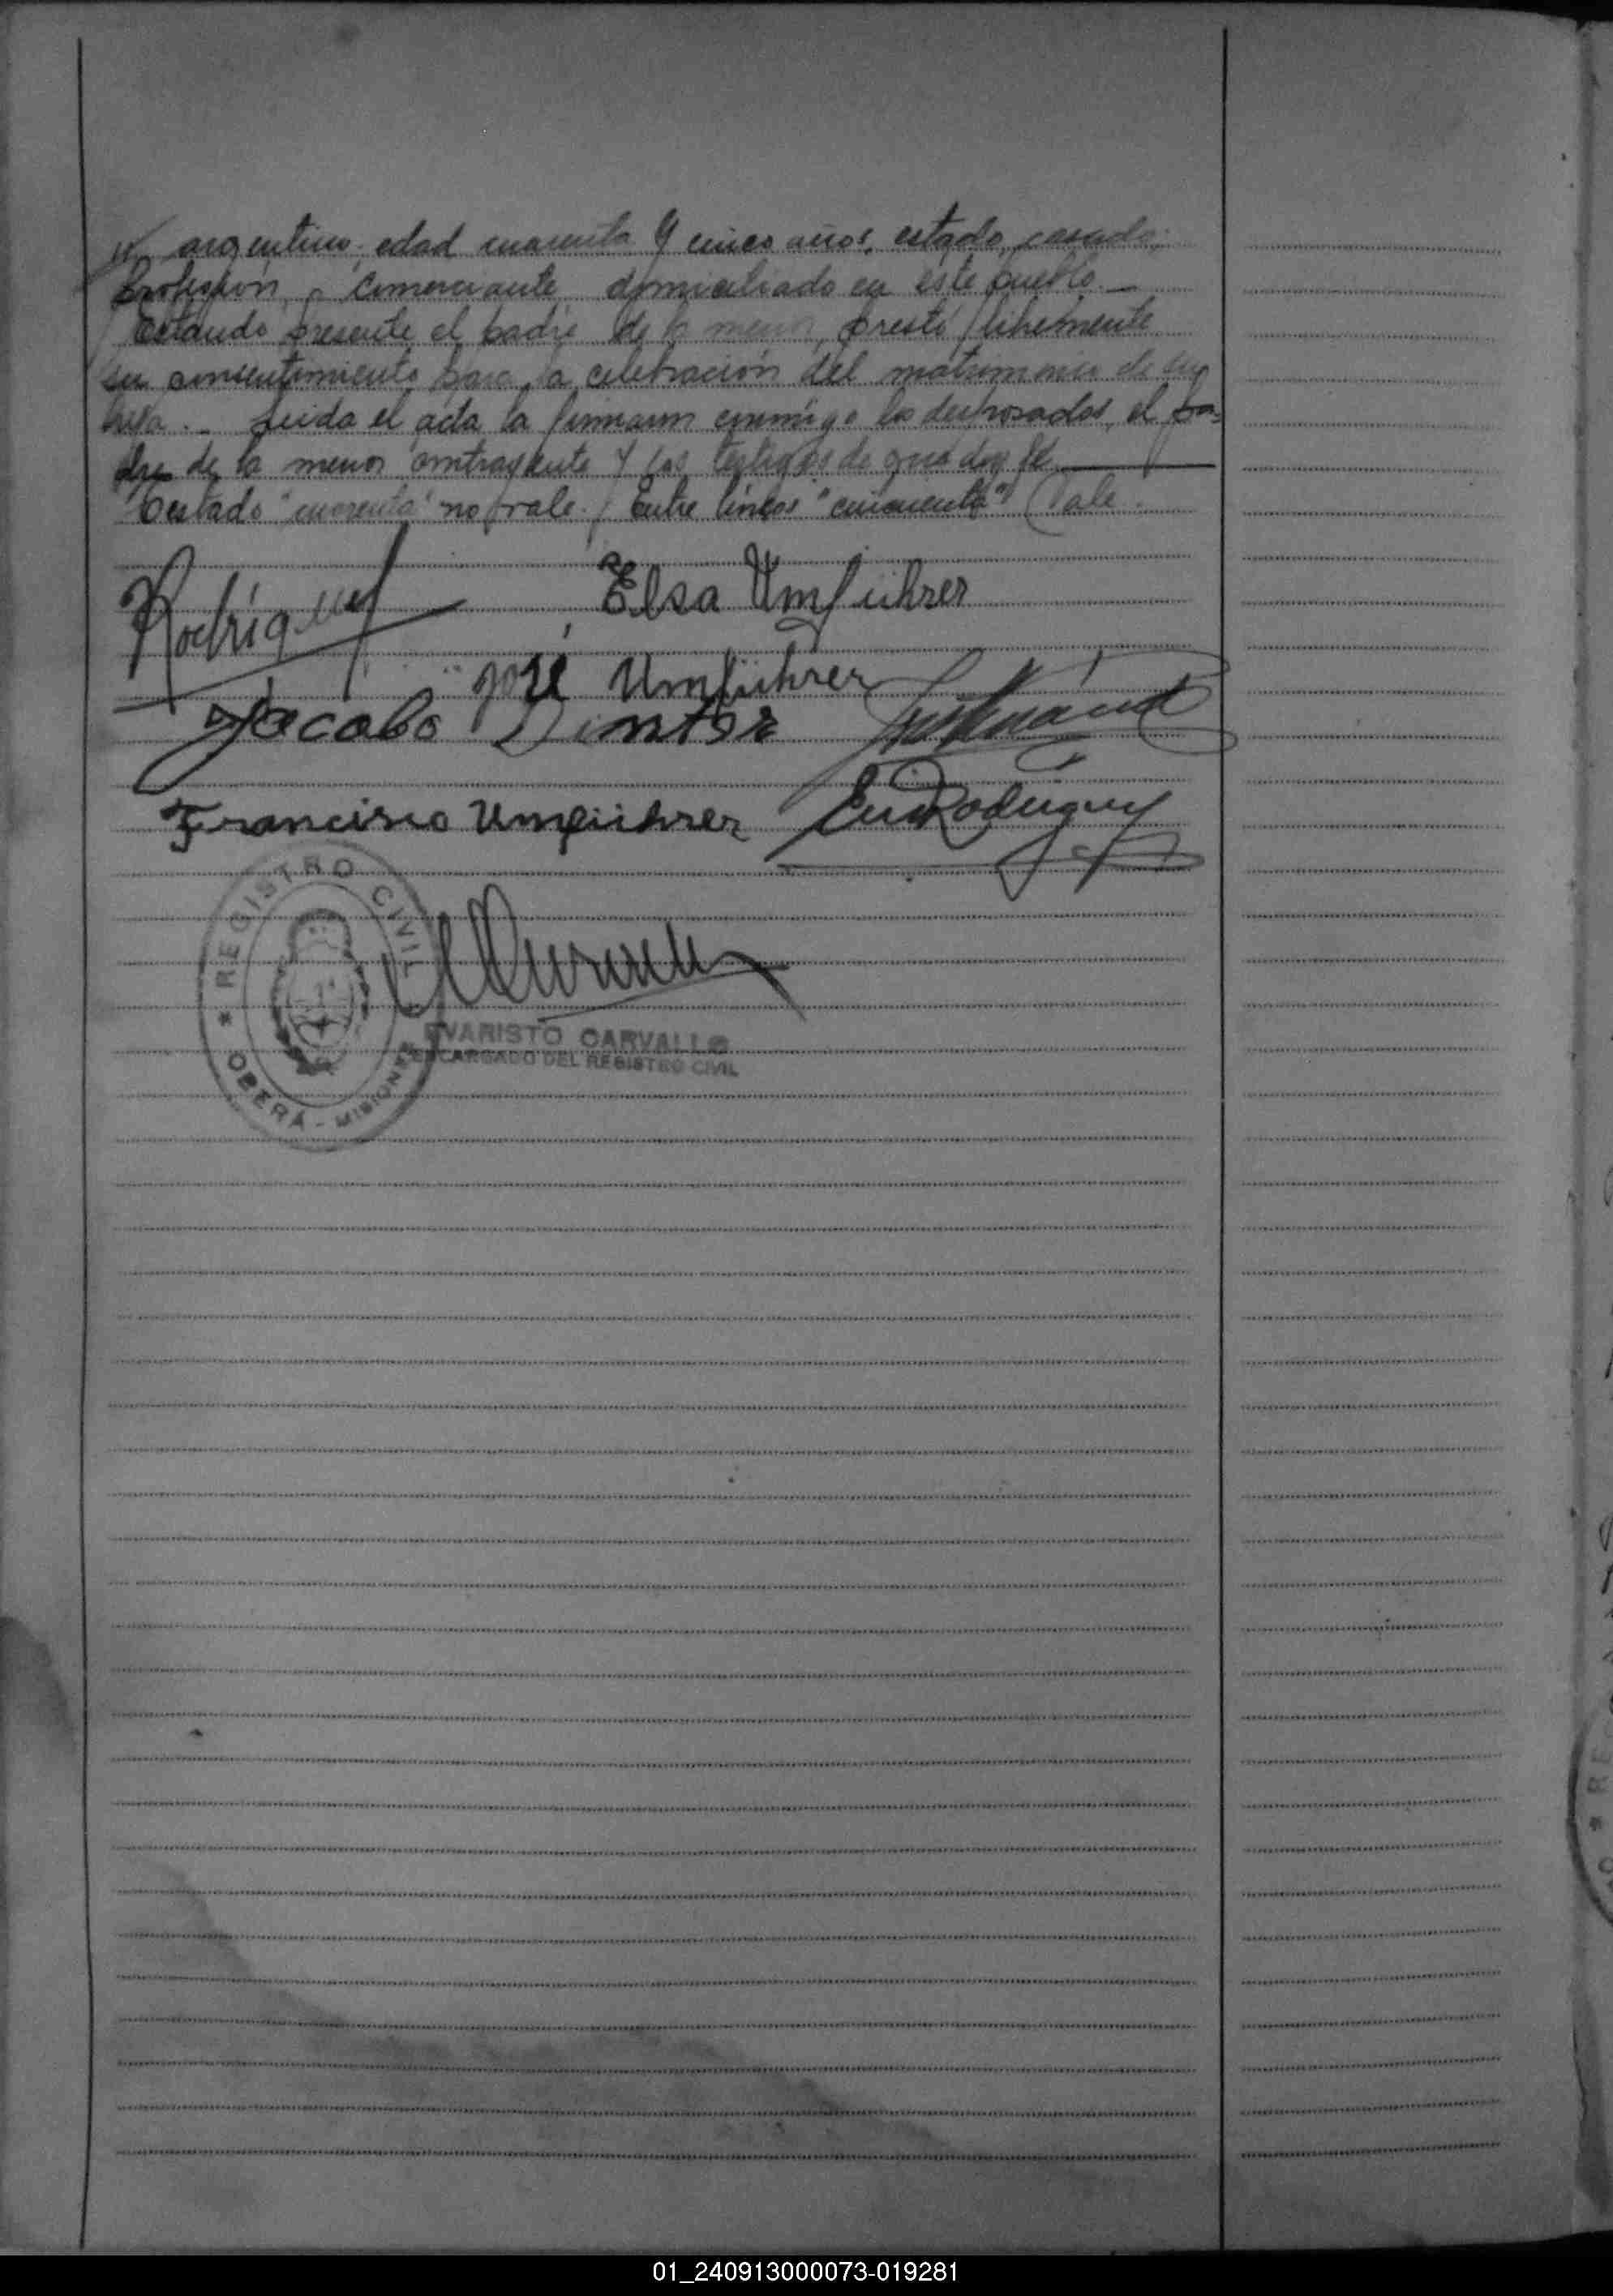 argentino, edad cuarenta y cinco años, estado casado;
profesión comerciante domiciliado en este pueblo. —
Estando presente el padre de la menor, prestó libremente
su consentimiento para la celebración del matrimonio de su
hija. - Leida el acta la firmaron conmigo los desposados, el pa-
dre de la menor contrayente y los testigos de que doy fe.
Testado "cuarenta" no vale. Entre lineas "cincuenta" Vale.
Rodriguez
Elsa Umführer
José Umführer
Jacobo Dimter
Francisco Umführer
Rodriguez
REGISTRO CIVIL
OBERÁ - MISIONES
EVARISTO CARVALLO
ENCARGADO DEL REGISTRO CIVIL
01_240913000073-019281